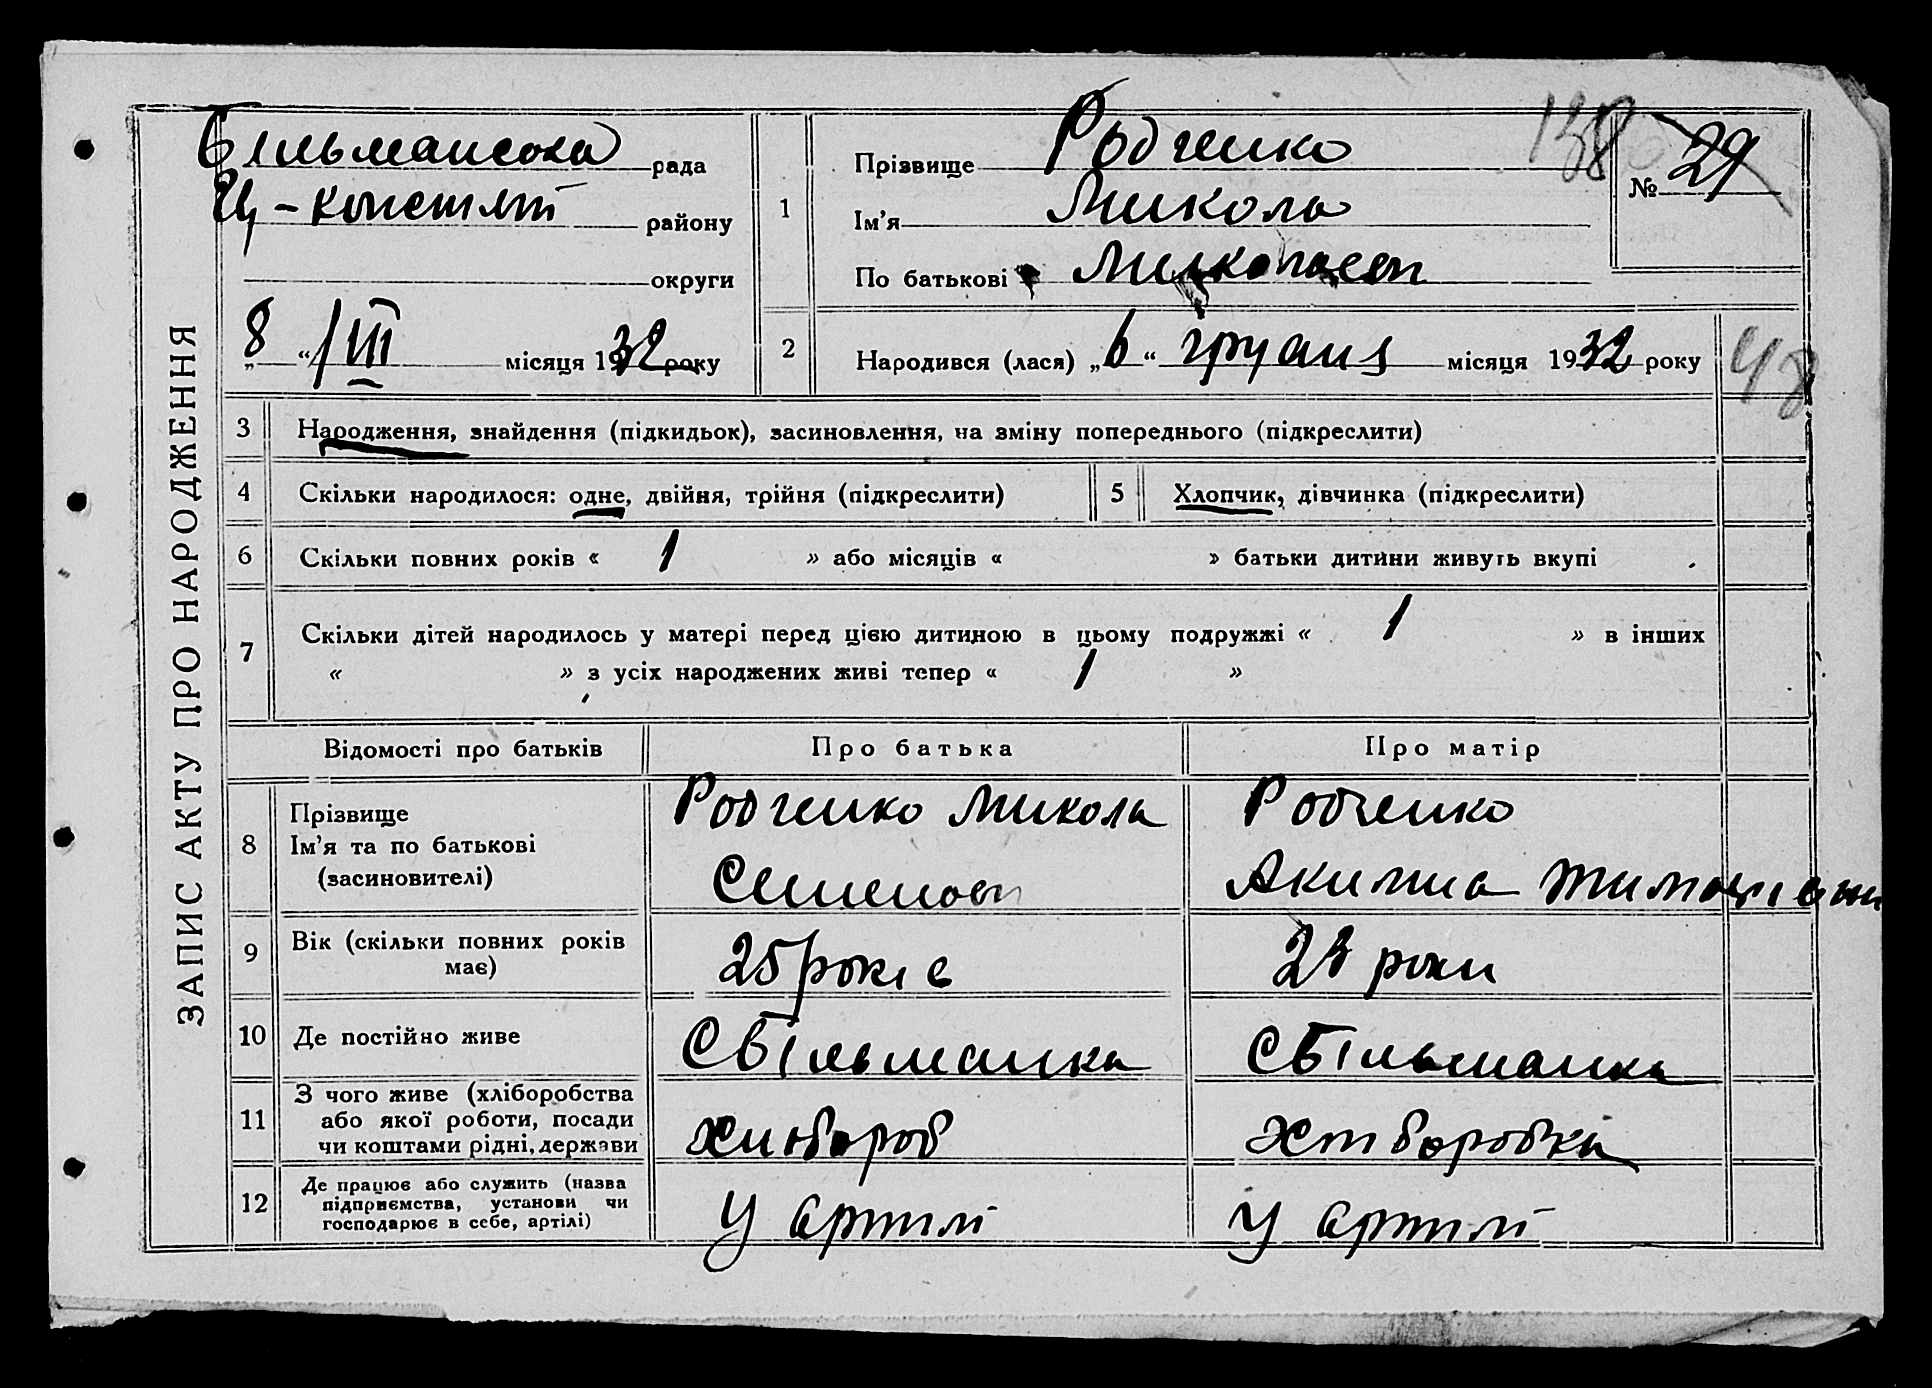 ЗАПИС АКТУ ПРО НАРОДЖЕННЯ
Більманська рада
Ц-Констянт району
округи
„8“ / III місяця 1932 року
1
Прізвище Родченко
Ім’я Микола
По батькові Миколаєв
138
№ 29
2
Народився (лася) „6“ грудня місяця 1932 року
48
3 Народження, знайдення (підкидьок), засиновлення, на зміну попереднього (підкреслити)
4 Скільки народилося: одне, двійня, трійня (підкреслити)
5 Хлопчик, дівчинка (підкреслити)
6 Скільки повних років « 1 » або місяців « » батьки дитини живуть вкупі
7 Скільки дітей народилось у матері перед цією дитиною в цьому подружжі « 1 » в інших
« » з усіх народжених живі тепер « 1 »
Відомості про батьків Про батька Про матір
8 Прізвище
Ім’я та по батькові
(засиновителі)
Родченко Микола
Семенов
Родченко
Акилина
9 Вік (скільки повних років
має)
25 років
23 роки
10 Де постійно живе
С Більманка
С Більманка
11 З чого живе (хліборобства
або якої роботи, посади
чи коштами рідні, держави
хлібороб
хліборобка
12 Де працює або служить (назва
підприємства, установи чи
господарює в себе, артілі)
У артілі
У артілі